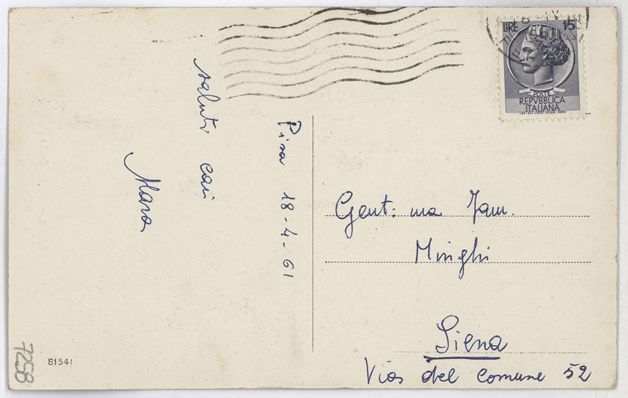 saluti cari
Mara
Pisa 18-4-61
LIRE 15
POSTE
REPVBBLICA
ITALIANA
Gent: ma Fam.
Minghi
Siena
Via del Comune 52
81541
7258